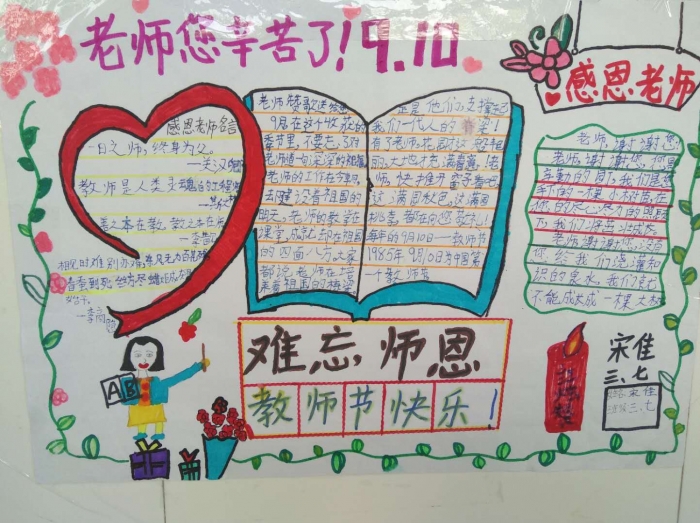 老师您辛苦了!9.10
感恩老师
感恩老师名言
一日之师,终身为父。
—关汉
教师是人类灵魂的工程师
相见时难别亦难,东风无力百花残
春蚕到死丝方尽 蜡炬成灰
—李商隐
老师赞歌送给您
9月在这个收获的
季节里,不要忘了对
老师道一句深深的祝福
老师的工作在今日,
去建设着祖国的
明天。老师的教学在
课堂,成就却在祖国
的四面八方。大家
都说老师在培
育着祖国的栋梁
正是他们支撑起
我们一代人的脊梁!
有了老师,花园这么艳
丽。大地才充满着意!老
师,快推开窗子看吧
这满园秋色,这满园
桃李,都在向您敬礼!
每年的9月10日—教师节
1985年9月10日为中国第
一个教师节
老师,谢谢您!
老师,谢谢您,您是
辛勤的园丁,我们是您
手下的一棵小树苗,在
你的尽心尽力的照顾
下,我们将茁壮成长
老师谢谢您,没有
您给我们浇灌知
识的泉水,我们就
不能成长成一棵大树
难忘师恩
教师节快乐!
AB
宋佳
三、七
姓名宋佳
班级三、七